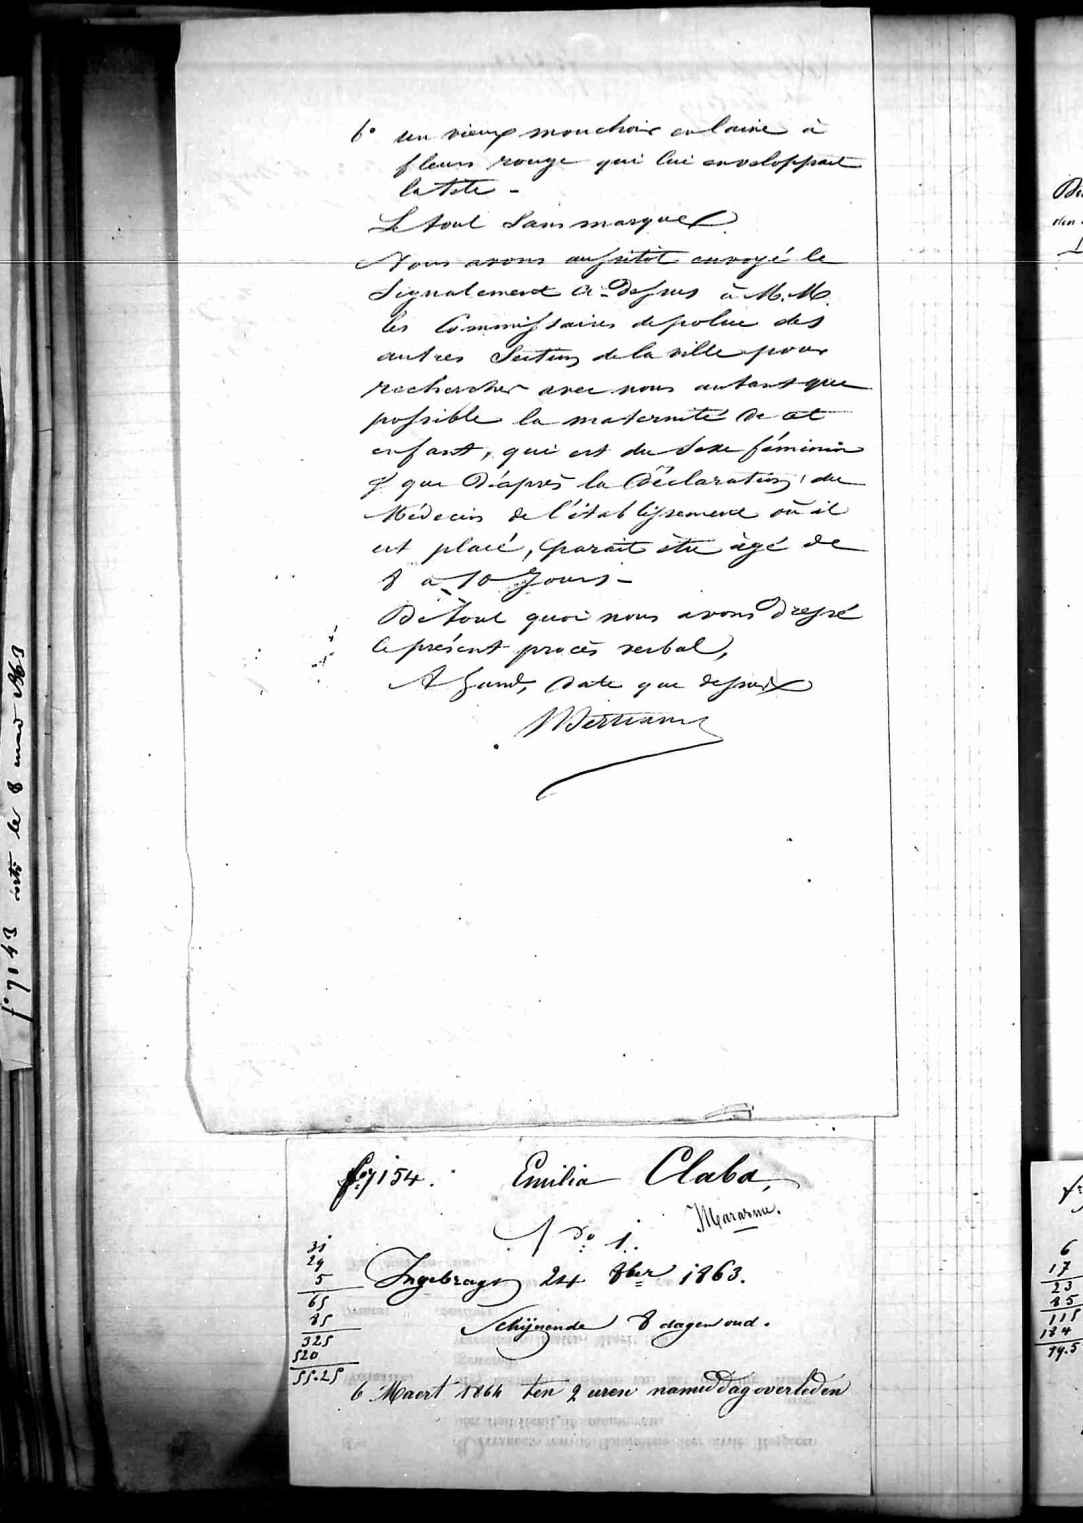 6° un vieux mouchoir en laine à
fleurs rouge qui lui enveloppait
la tête -
Le tout sans marque
Nous avons aussitôt envoyé le
signalement ci-dessus à M.M.
les Commissaires de police des
autres Sections de la ville pour
rechercher avec nous autant que
possible la maternité de cet
enfant, qui est du sexe féminin
& que d'après la Déclaration du
Médecin de l'établissement où il
est placé, parait être âgé de
8 à 10 Jours -
De tout quoi nous avons Dressé
le présent procès verbal,
A Gand, Date que dessus
f° 7143 le 8 1863
f° 7154. Emilia Claba,
Marasme.
N° 1.
Ingebragt 24 8ber 1863.
Schijnende 8 dagen oud.
31
29
5
65
85
325
520
55.25
6 Maert 1864 ten 2 uren namiddag overleden
6
17
23
85
115
184
19.5